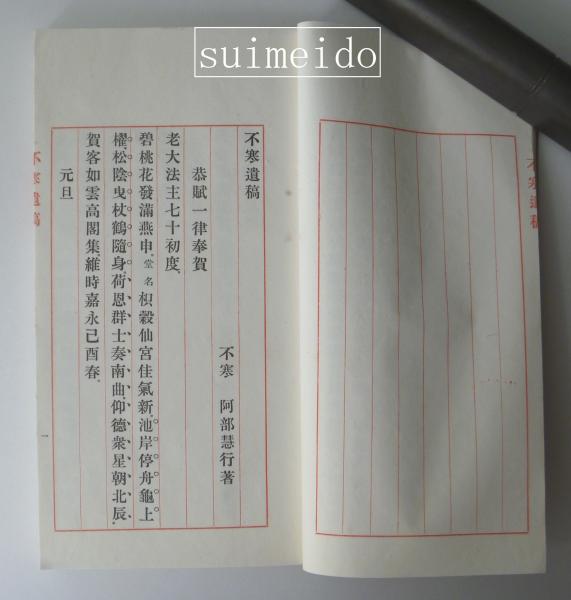 suimeido
不寒遺稿
不寒　阿部慧行著
恭賦一律奉賀
老大法主七十初度、
碧桃花發滿燕申。堂名枳殼仙宮佳氣新。池岸停舟龜上
櫂。松陰曳杖鶴隨身。荷恩群士奏南曲、仰德衆星朝北辰、
賀客如雲高閣集、維時嘉永己酉春。
元旦
不寒遺稿
一
不寒遺稿